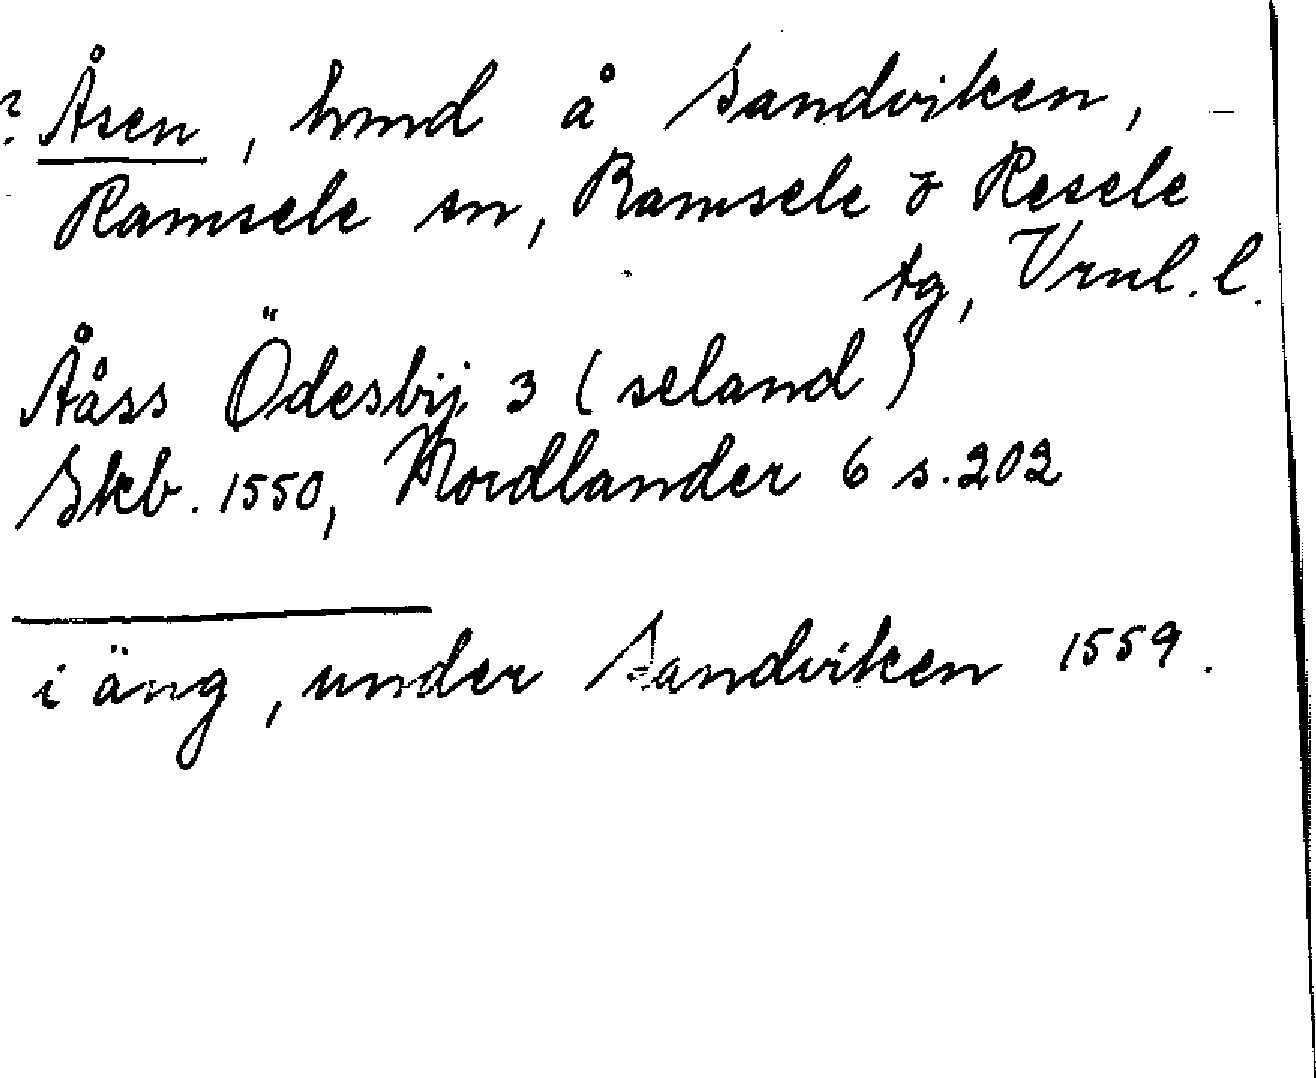 ? Åsen, hmd å Sandviken,
Ramsele sn, Ramsele o Resele
tg, Vrnl. l.
Ååss Ödesbij 3 (seland)
Skb. 1550, Nordlander 6 s. 202
i äng, under Sandviken 1559.